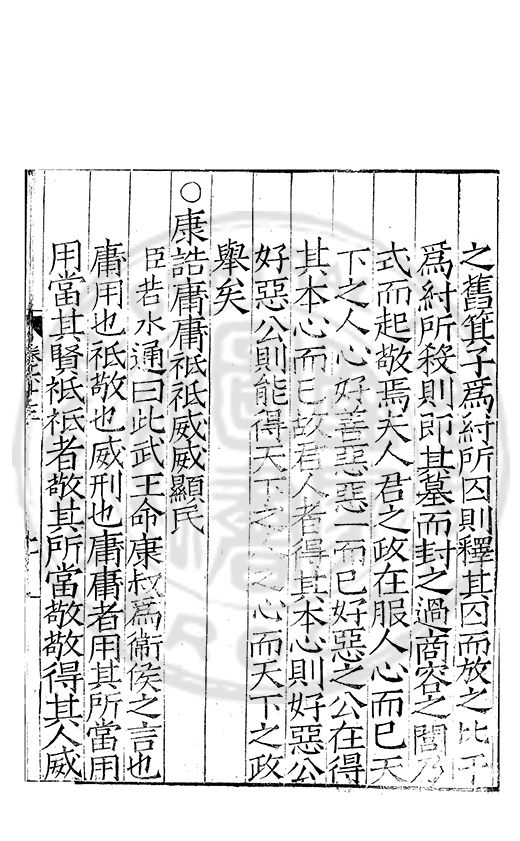 之舊箕子爲紂所囚則釋其囚而放之比干
爲紂所殺則即其墓而封之過商容之閭乃
式而起敬焉夫人君之政在服人心而已天
下之人心好善惡惡一而已好惡之公在得
其本心而已故君人者得其本心則好惡公
好惡公則能得天下之心而天下之政
舉矣
○康誥庸庸祗祗威威顯民
臣若水通曰此武王命康叔爲衞侯之言也
庸用也祗敬也威刑也庸庸者用其所當用
用當其賢祗祗者敬其所當敬敬得其人威